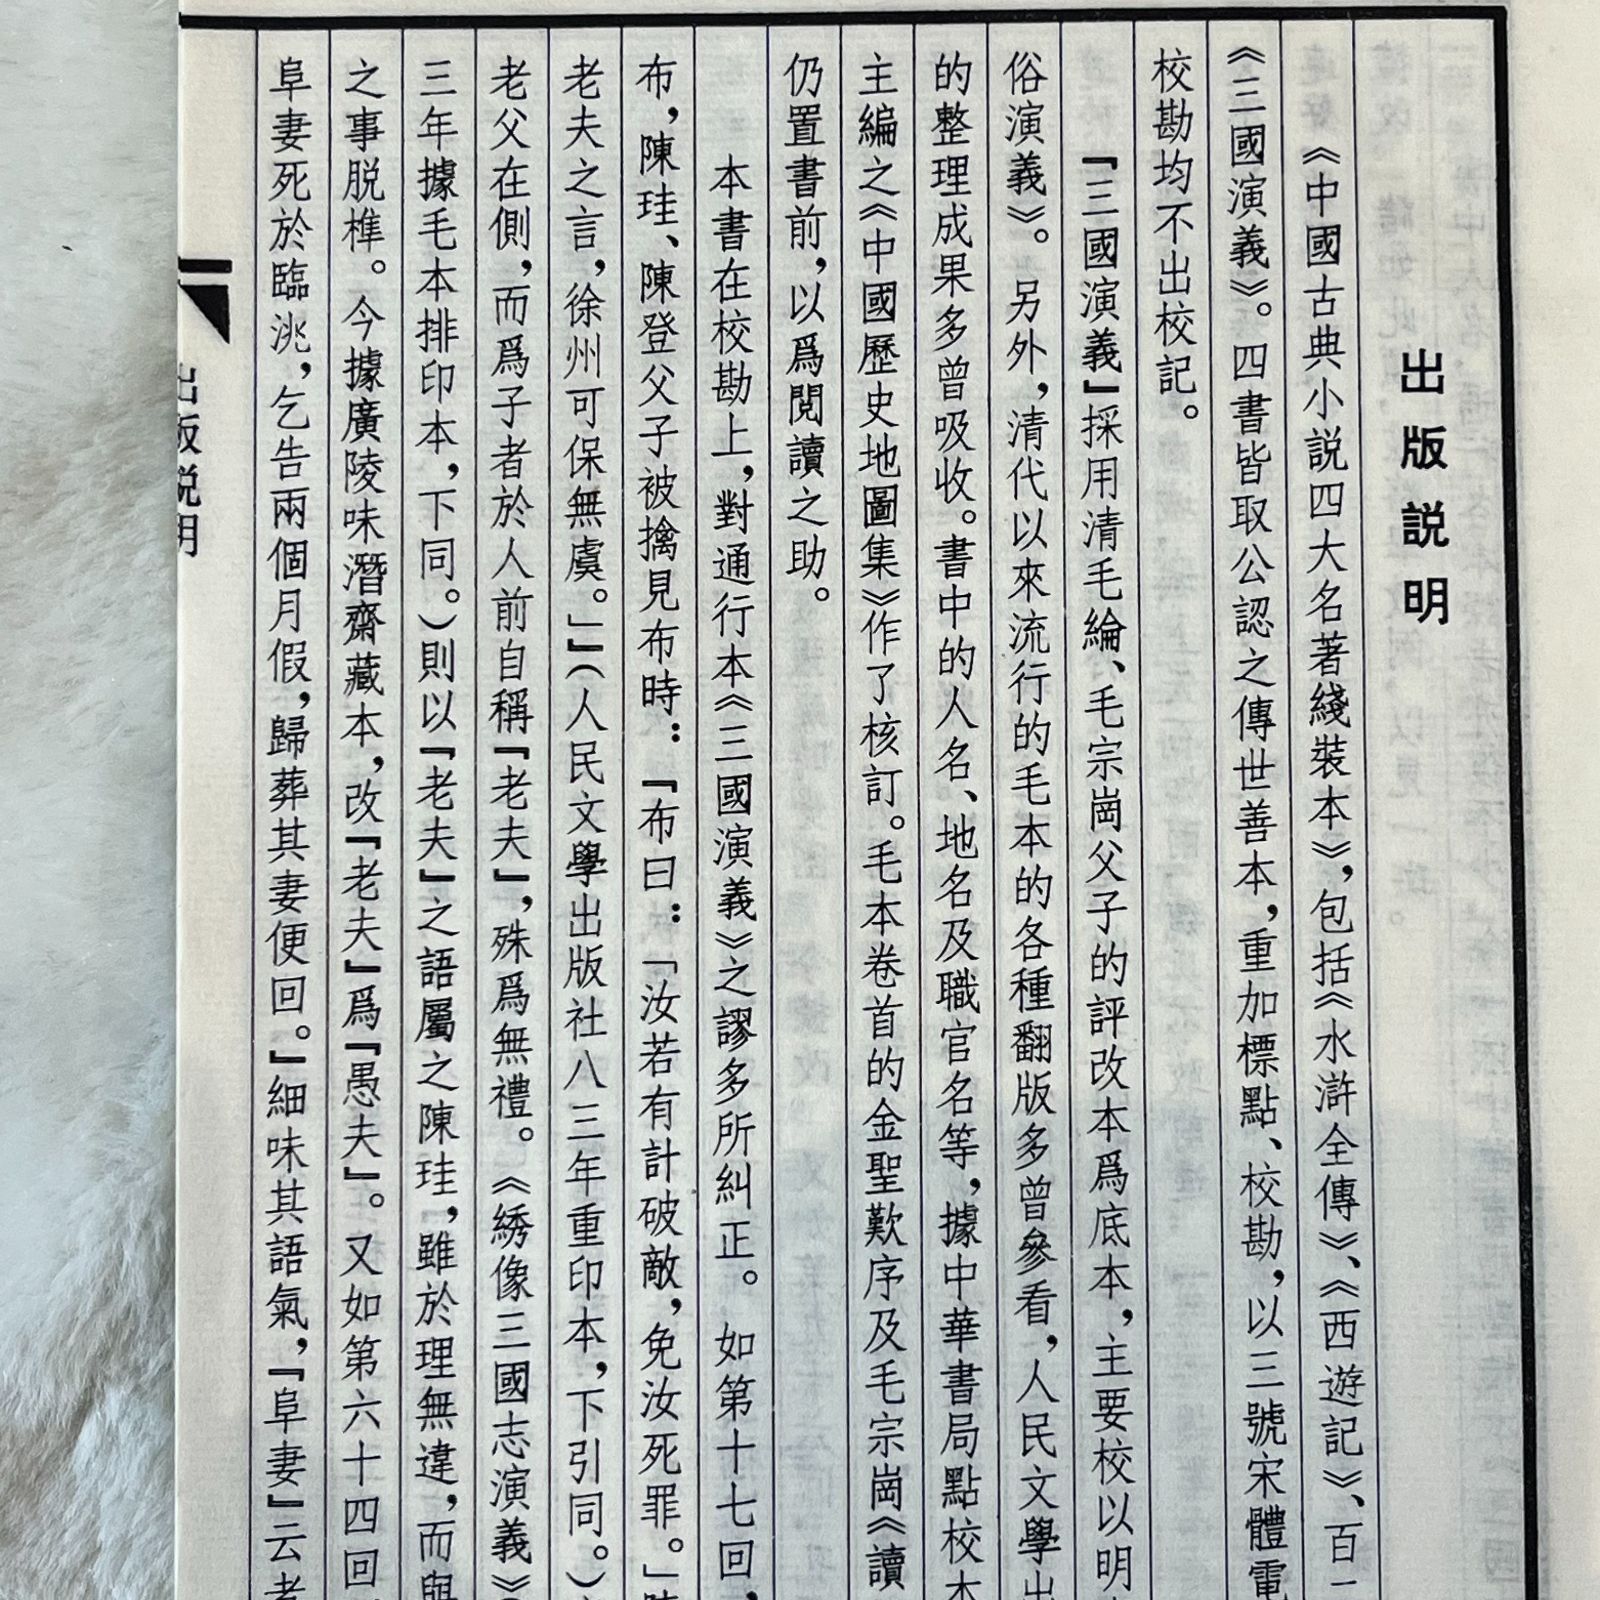 出版説明
《中國古典小説四大名著綫裝本》，包括《水滸全傳》、《西遊記》、百
《三國演義》。四書皆取公認之傳世善本，重加標點、校勘，以三號宋體電
校勘均不出校記。
『三國演義』採用清毛綸、毛宗崗父子的評改本爲底本，主要校以明
俗演義》。另外，清代以來流行的毛本的各種翻版多曾參看，人民文學出
的整理成果多曾吸收。書中的人名、地名及職官名等，據中華書局點校本
主編之《中國歷史地圖集》作了核訂。毛本卷首的金聖歎序及毛宗崗《讀
仍置書前，以爲閱讀之助。
本書在校勘上，對通行本《三國演義》之謬多所糾正。如第十七回，
布，陳珪、陳登父子被擒見布時：『布曰：「汝若有計破敵，免汝死罪。」
老夫之言，徐州可保無虞。」』（人民文學出版社八三年重印本，下引同。）
老父在側，而爲子者於人前自稱『老夫』，殊爲無禮。《綉像三國志演義》
三年據毛本排印本，下同。）則以『老夫』之語屬之陳珪，雖於理無違，而與
之事脱榫。今據廣陵味潛齋藏本，改『老夫』爲『愚夫』。又如第六十四回
阜妻死於臨洮，乞告兩個月假，歸葬其妻便回。』細味其語氣，『阜妻』云者
出版説明